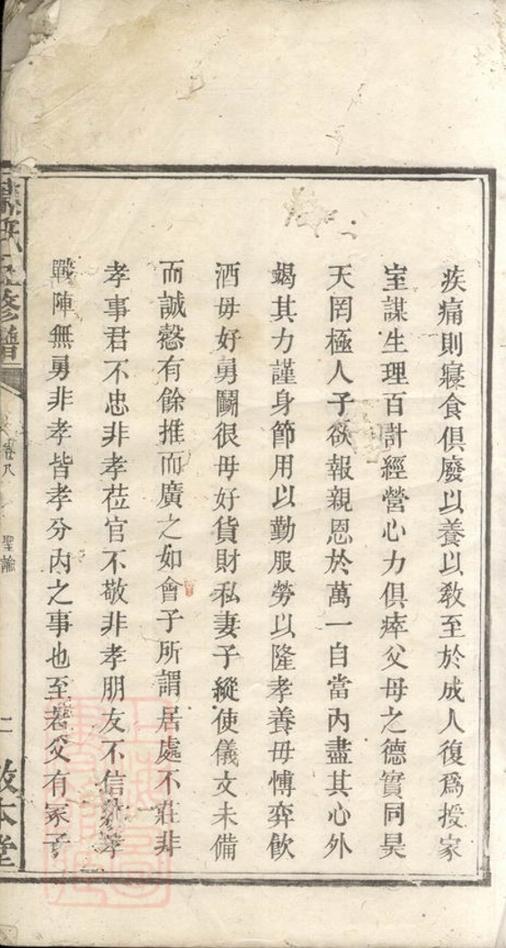 疾痛則寢食俱廢以養以敎至於成人復爲授家
室謀生理百計經營心力俱瘁父母之德實同昊
天罔極人子欲報親恩於萬一自當內盡其心外
竭其力謹身節用以勤服勞以隆孝養毋愽弈飲
酒毋好勇鬭很毋好貨財私妻子縱使儀文未備
而誠慤有餘推而廣之如曾子所謂居處不莊非
孝事君不忠非孝莅官不敬非孝朋友不信非孝
戰陣無勇非孝皆孝分内之事也至若父有冡子
氏五修譜
卷八
聖諭
二
敦本堂